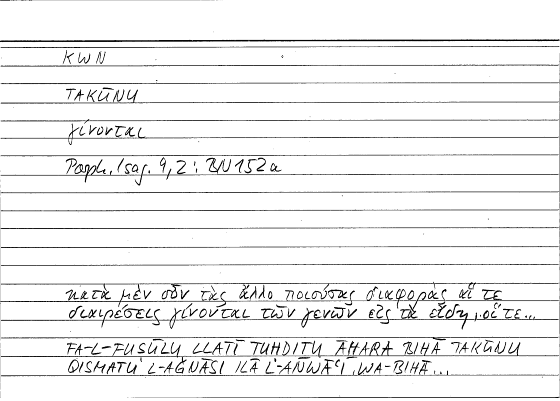 KWN
TAKŪNU
γίνονται
Porph. Isag. 9,2 : BN 152a
κατὰ μὲν οὖν τὰς ἄλλο ποιούσας διαφορὰς αἵ τε
διαιρέσεις γίνονται τῶν γενῶν εἰς τὰ εἴδη, οἵ τε...
FA-L-FUṢŪLU LLATĪ TUḤDIṮU ĀḪARA BIHĀ TAKŪNU
QISMATU L-AǦNĀSI ILĀ L-ANWĀʿI, WA-BIHĀ...